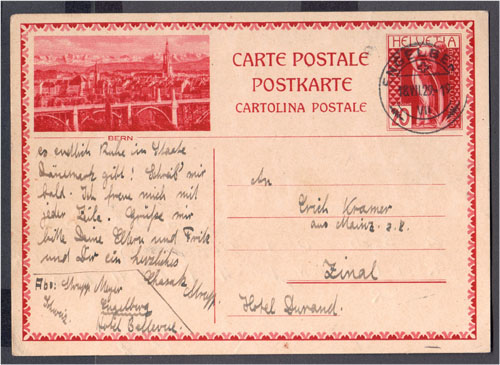 CARTE POSTALE
POSTKARTE
CARTOLINA POSTALE
HELVETIA
ENGELBERG
10
BERN
es endlich Ruhe im Staate
Dänemark gibt! Schreib' mir
bald. Ich freue mich mit
jeder Zeile. Grüße mir
bitte Deine Eltern und Fritz
und Dir ein herzliches
Abs: Meyer
Engelberg
Hotel Bellevue.
Schweiz
An
Erich Kramer
aus Mainz a. R.
Zinal
Hotel Durand.